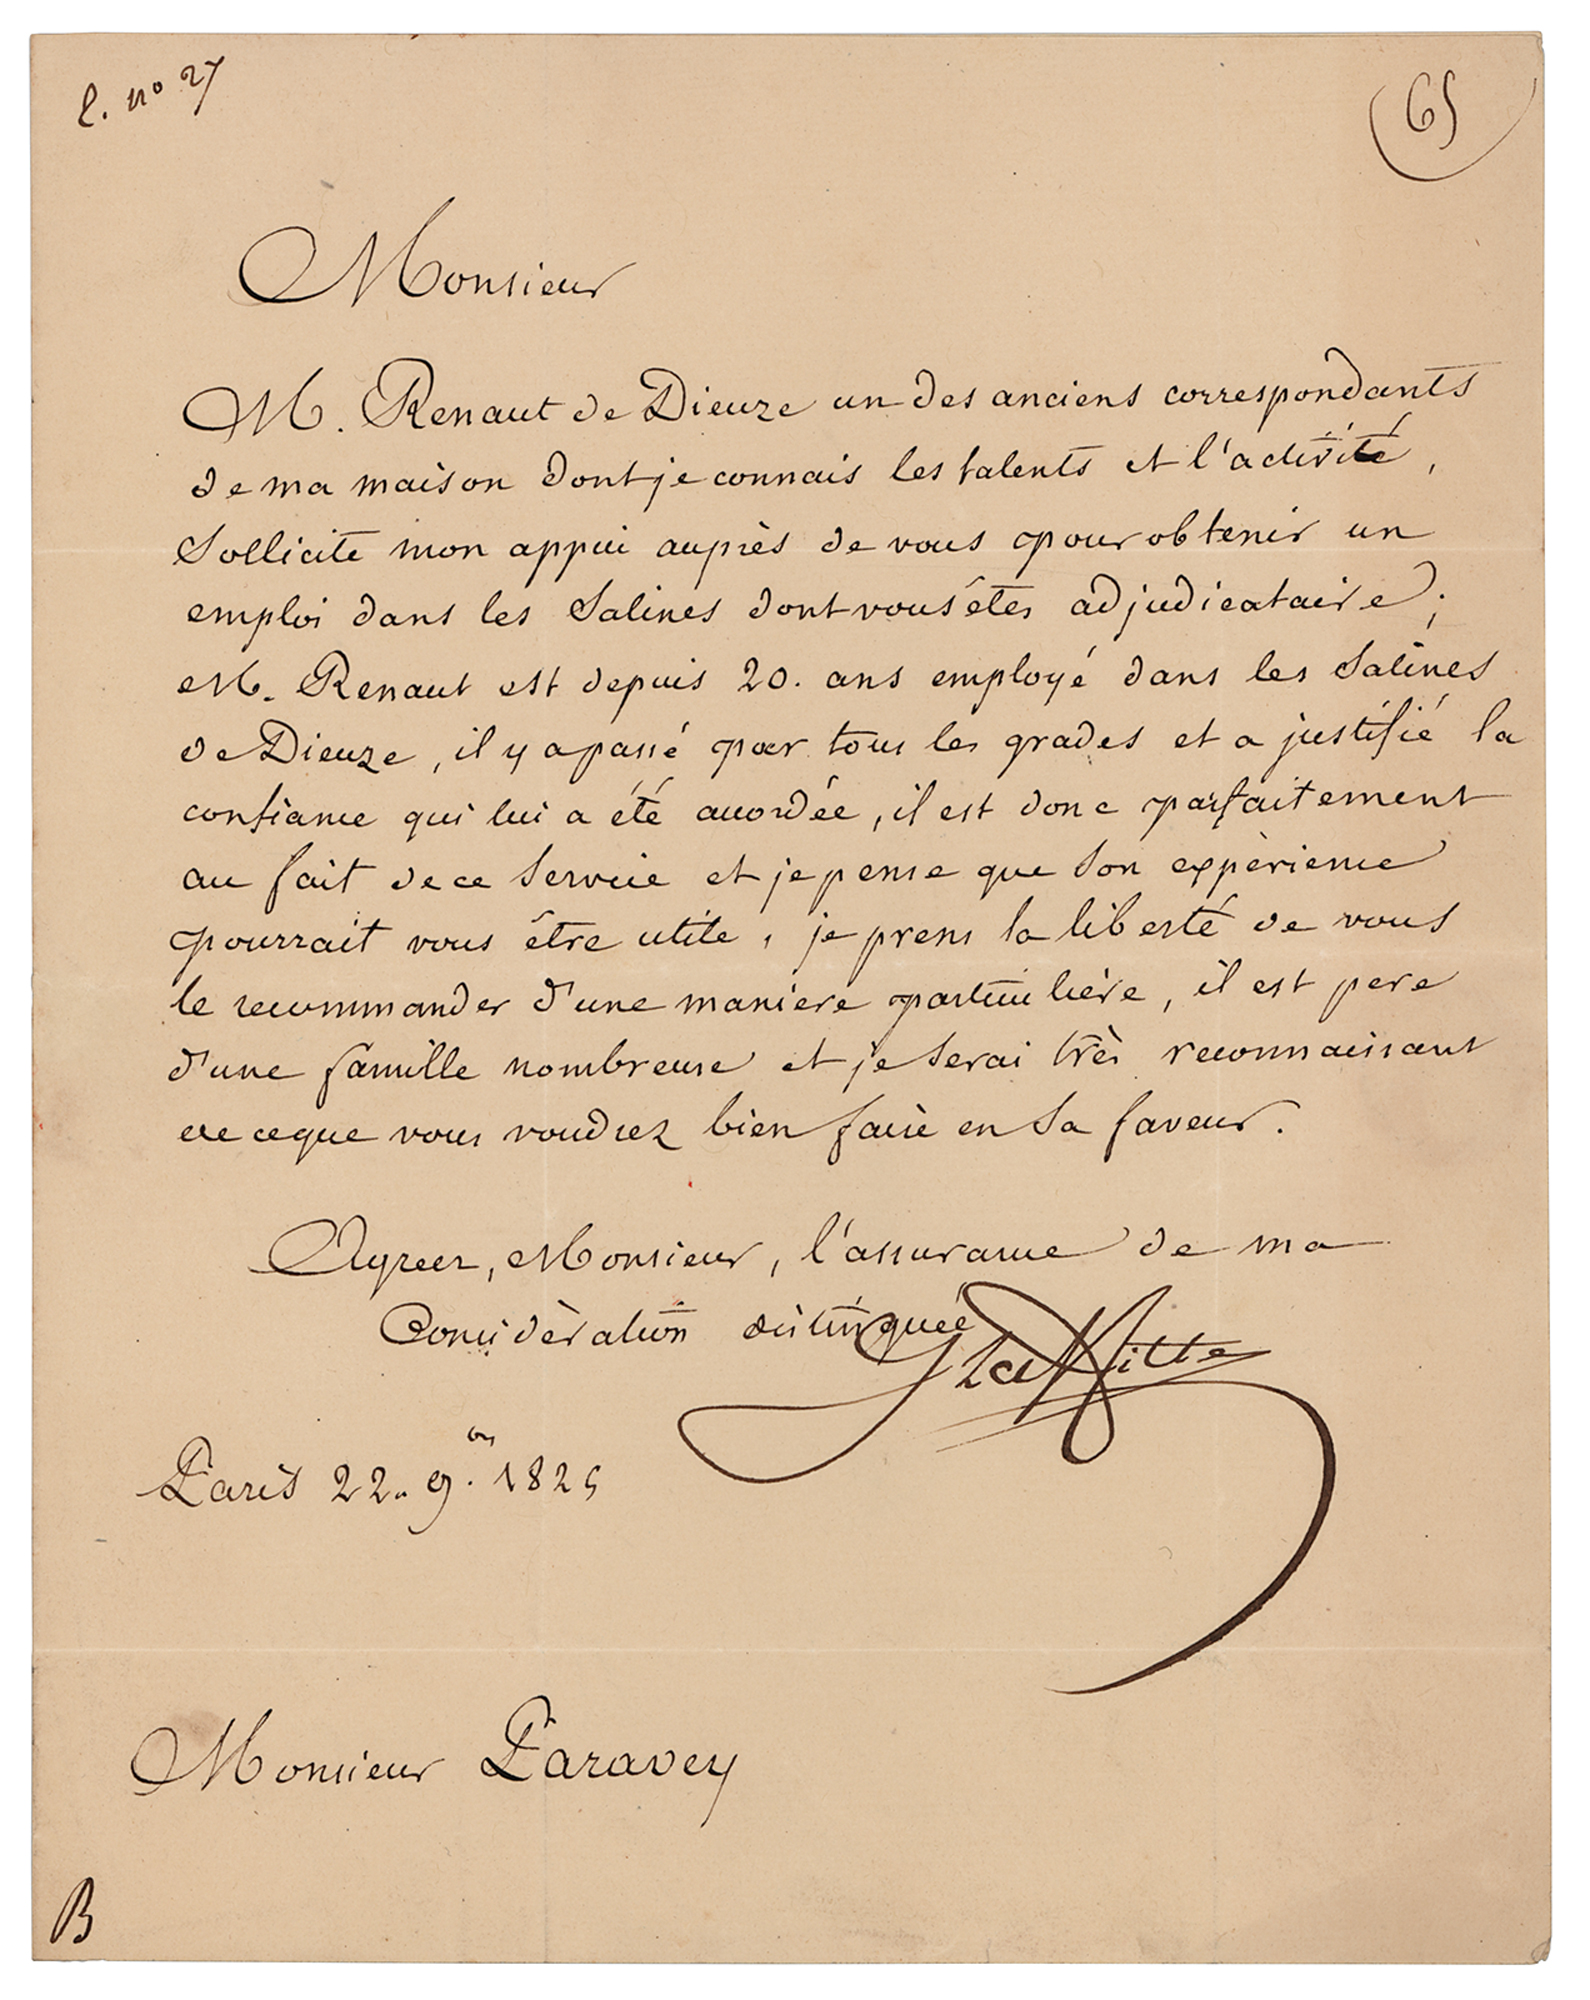 l. no 27
65
Monsieur
M. Renaut de Dieuze un des anciens correspondants
de ma maison dont je connais les talents et l'activité,
Sollicite mon appui auprès de vous pour obtenir un
emploi dans les Salines dont vous êtes adjudicataire ;
M. Renaut est depuis 20. ans employé dans les Salines
de Dieuze, il y a passé par tous les grades et a justifié la
confiance qui lui a été accordée, il est donc parfaitement
au fait de ce Service et je pense que Son expèrience
pourrait vous être utile, je prens la liberté de vous
le recommander d'une maniere particulière, il est pere
d'une famille nombreuse et je Serai très reconnaissant
de ceque vous voudrez bien faire en Sa faveur.
Agreez, Monsieur, l'assurance de ma
Considèration distinguée
J Laffitte
Paris 22. 9.bre 1825
Monsieur Paravey
B